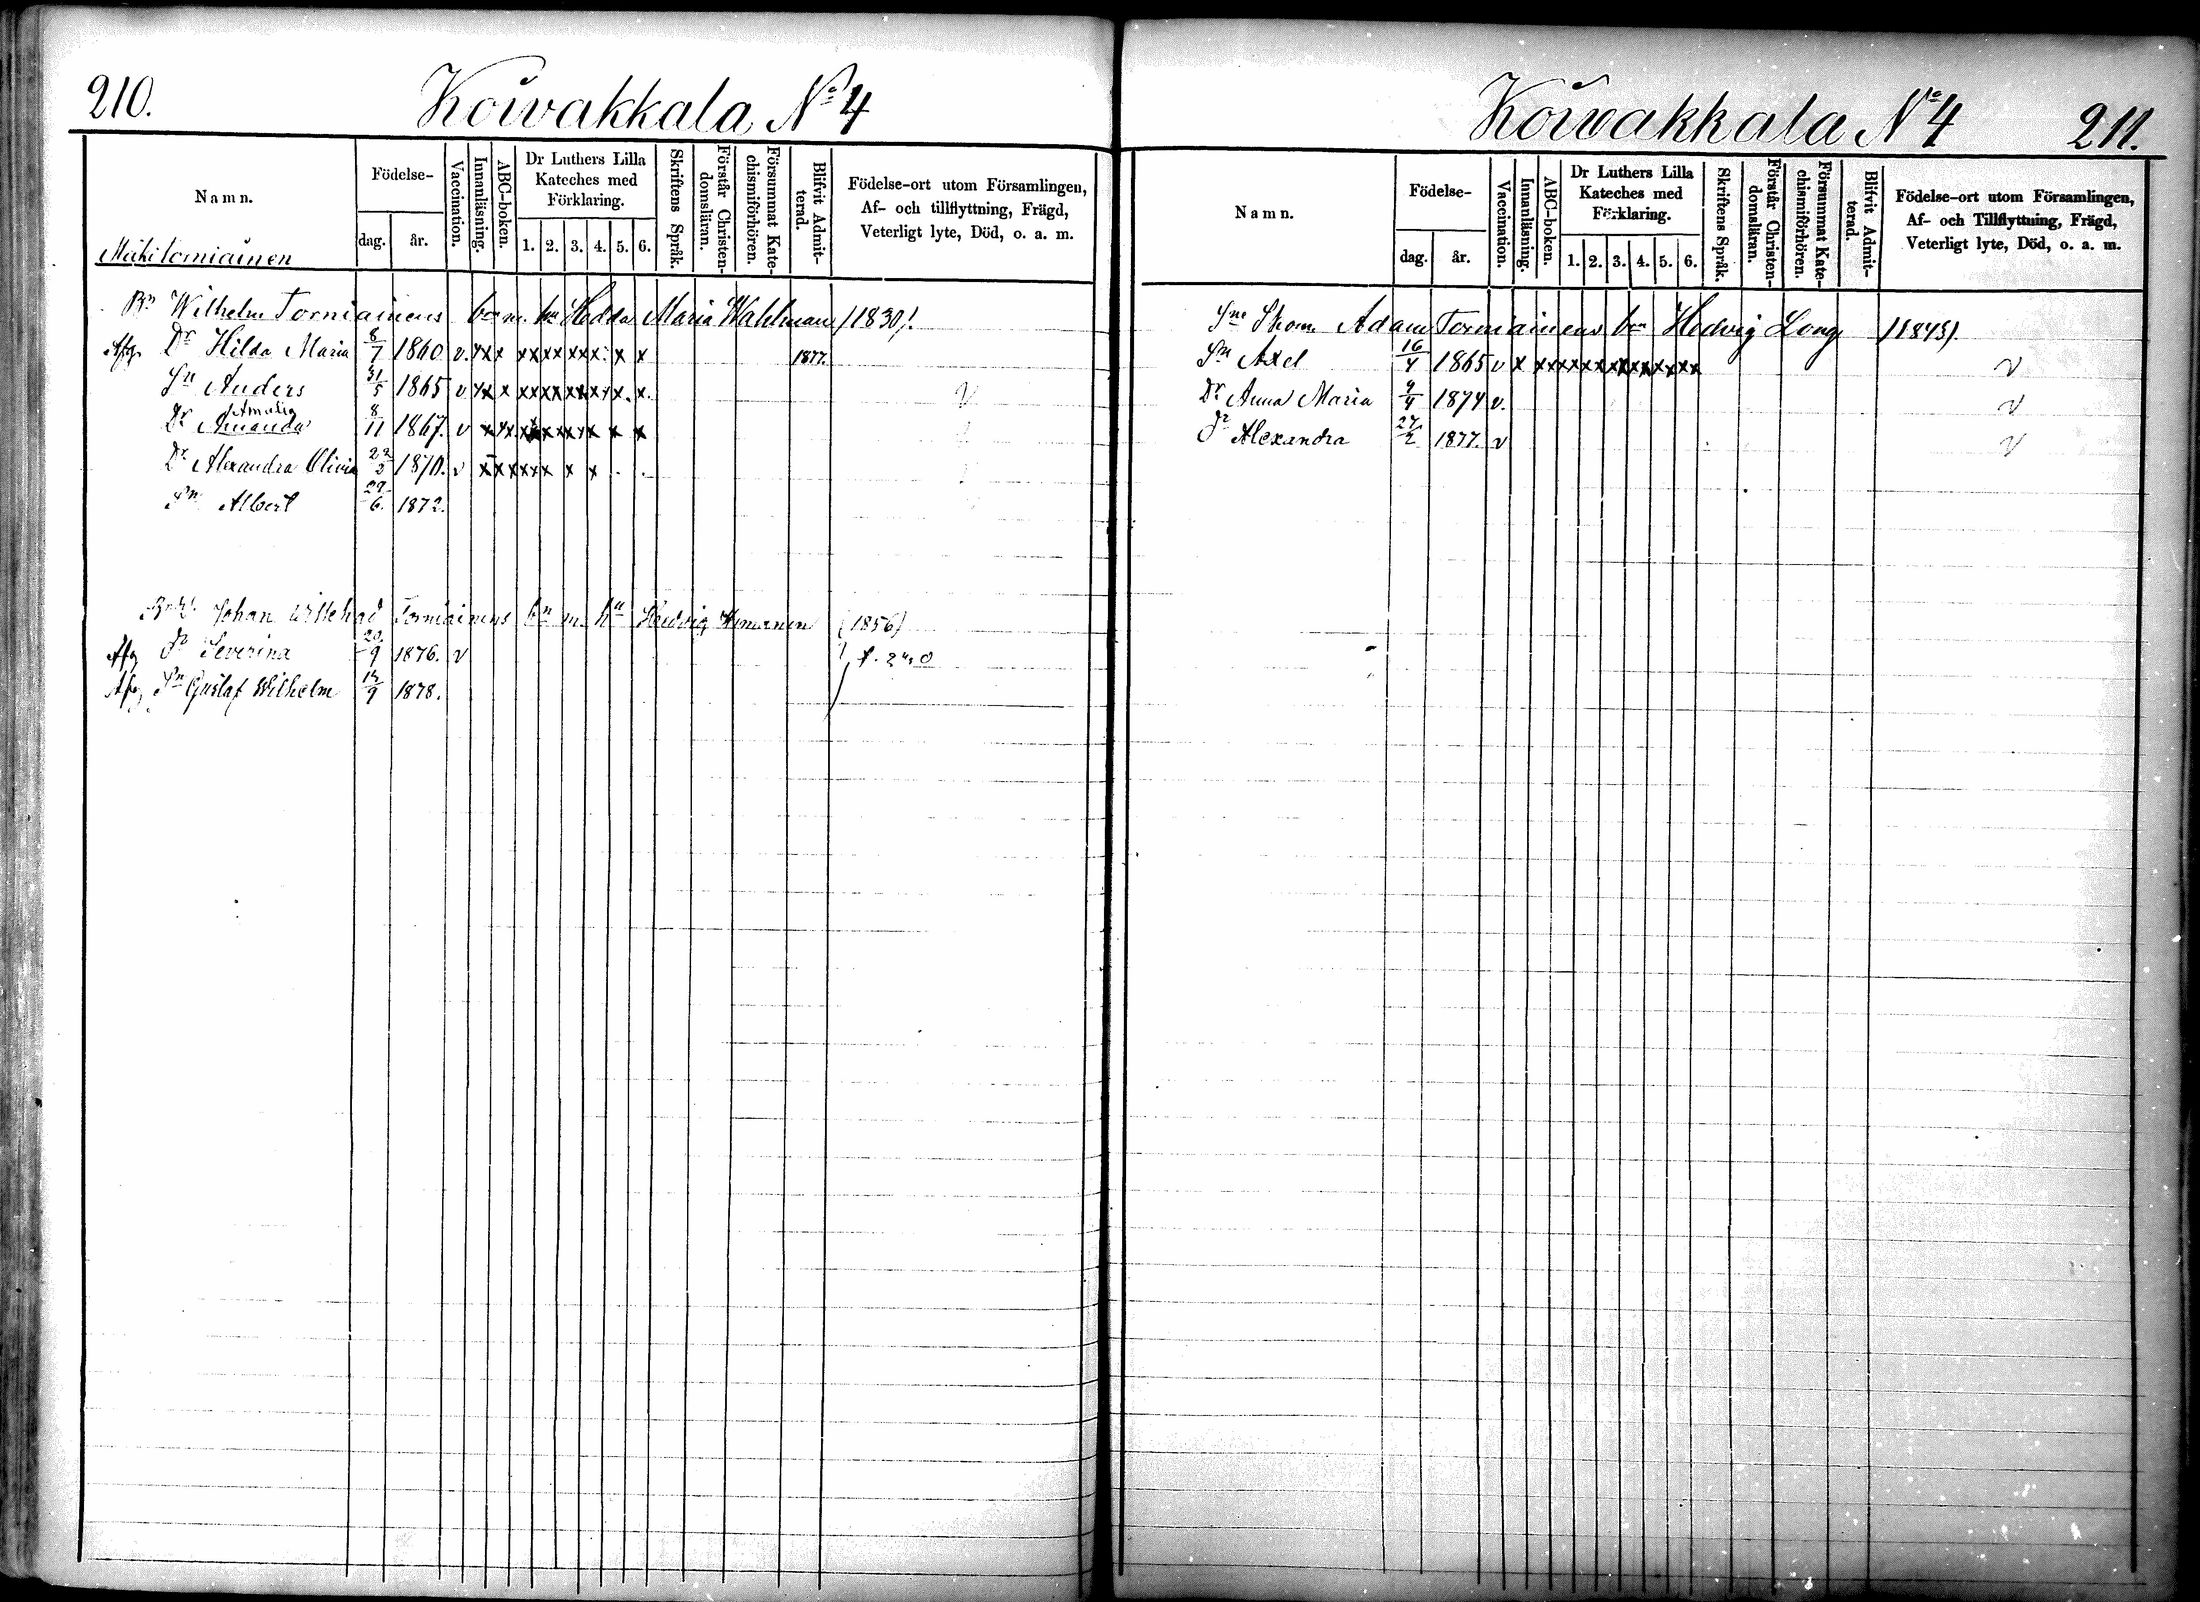 210.
Koivakkala No 4
Namn.
Födelse-
dag.
år.
Vaccination.
Innanläsning.
ABC-boken.
Dr Luthers Lilla Kateches med Förklaring.
1. 2. 3. 4. 5. 6.
Skriftens Språk.
Förstår Christen-domsläran.
Försummat Kate-chismiförhören.
Blifvit Admit-terad.
Födelse-ort utom Församlingen,
Af- och tillflyttning, Frägd,
Veterligt lyte, Död, o. a. m.
Mäkitorniainen
Bn Wilhelm Torniainens barn m. hu Hedda Maria Wahlman /1830/.
Afg. Dr Hilda Maria 8/7 1860 v. x x x x x x x x x x x 1877.
Sn Anders 31/5 1865 v x x x x x x x x x x x x. x. v
Amalia
Dr Amanda 8/11 1867. v x x x x x x x x x x x
Dr Alexandra Olivia 22/2 1870. v x x x x x x x x . .
Sn Albert 29/6. 1872.
Johan Torniainens bn m. hu Hedvig (1856)
Afg Dr Severina 20/9 1876. v
Afg Sn Gustaf Wilhelm 12/9 1878.
Koivakkala No 4
211.
Namn.
Födelse-
dag.
år.
Vaccination.
Innanläsning.
ABC-boken.
Dr Luthers Lilla Kateches med Förklaring.
1. 2. 3. 4. 5. 6.
Skriftens Språk.
Förstår Christen-domsläran.
Försummat Kate-chismiförhören.
Blifvit Admit-terad.
Födelse-ort utom Församlingen,
Af- och Tillflyttning, Frägd,
Veterligt lyte, Död, o. a. m.
Adam Torniainens bn Hedvig Long /1843/.
Sn Axel 16/4 1865 v x x x x x x x x x x x x x x v
Dr Anna Maria 9/4 1874 v. v
Dr Alexandra 27/2 1877. v v